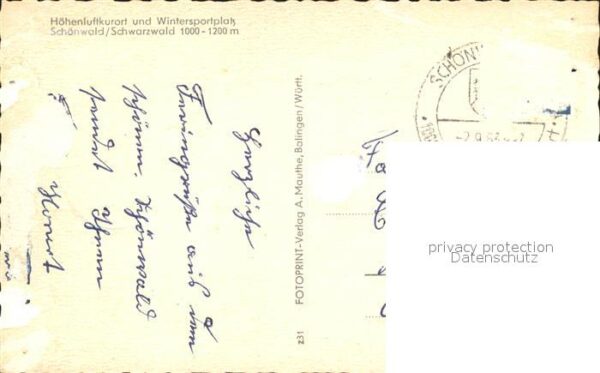 Höhenluftkurort und Wintersportplatz
Schönwald/Schwarzwald 1000-1200 m
Herzliche
Feriengrüße aus dem
schönen Schönwald
sendet Ihnen
FOTOPRINT-Verlag A. Mauthe, Balingen/Württ.
z31
SCHÖNW
privacy protection
Datenschutz